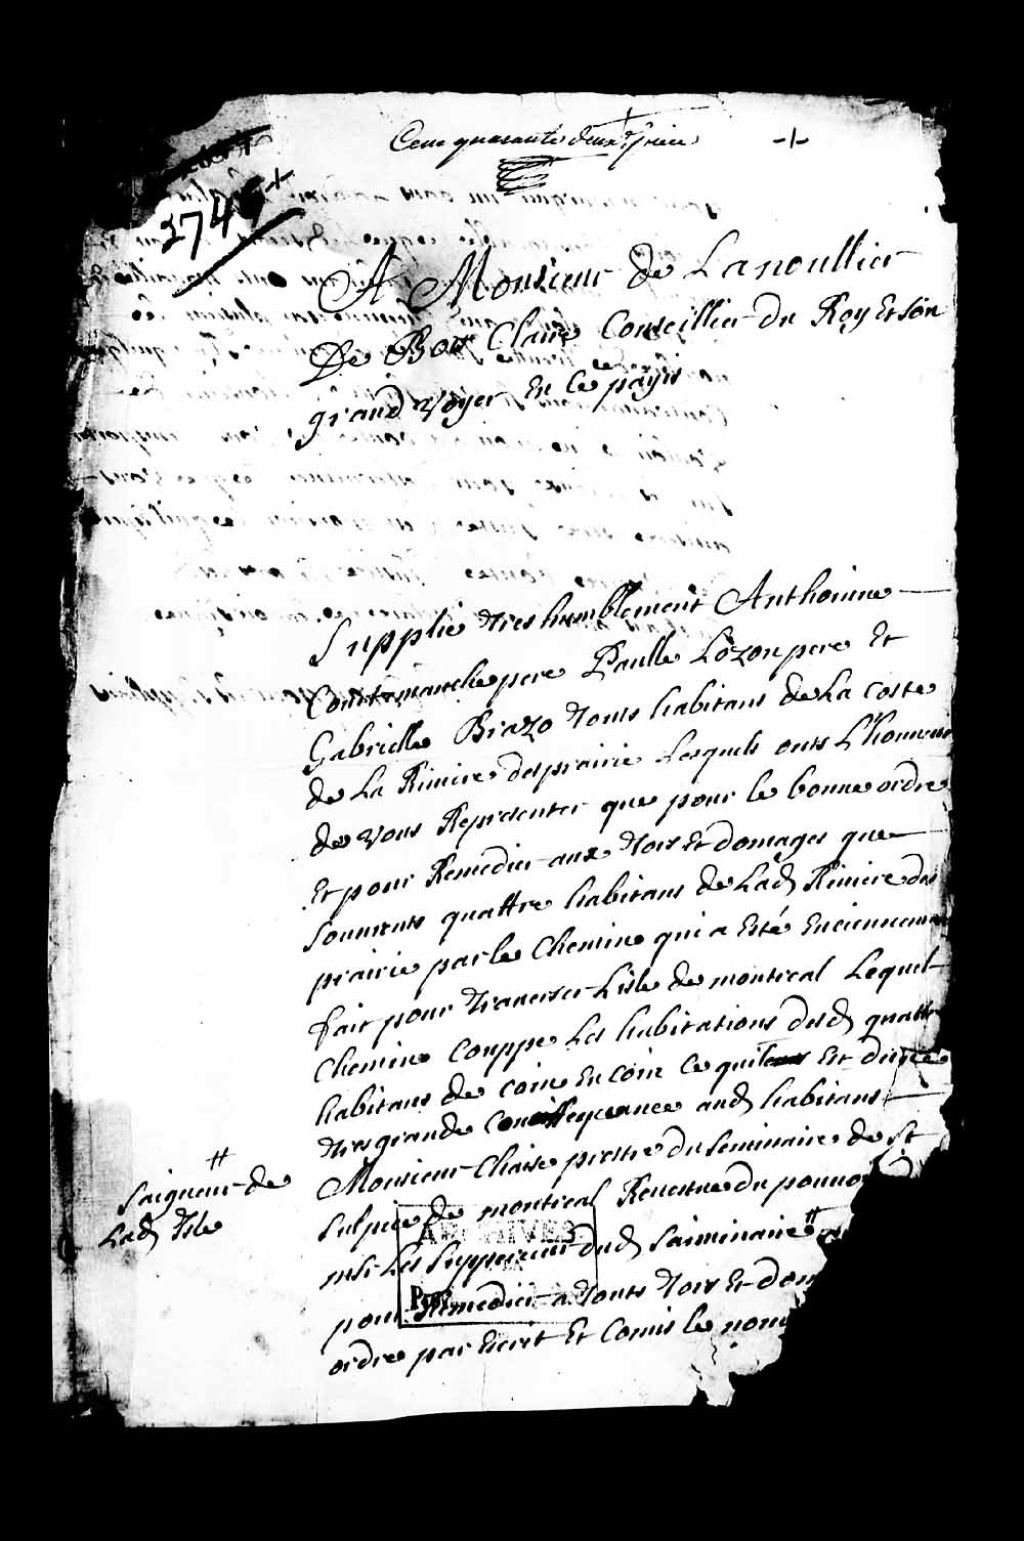 Cent quarante deux.e piece
1745
A Monsieur de Lanoullier
De Bois Claire Conseillier du Roy Et son
grand voyer En ce pays
Supplie tres humblement Anthoinne
Courtemanche pere Paulle Lozon pere Et
Gabrielle Brazo touts habitans de La coste
de La Riviere desprairie Lesquels onts L'honneur
de vous Representer que pour le bonne ordre
Et pour Remedier aux tors Et domages que
souvents quattre habitans de Lad Riviere des
prairie par le Chemine qui a Esté Encienneme
fait pour traverser Lisle de montreal Lequel
Chemine Couppe Les habitations desd quattre
habitans de coine En coin Ce qui Est d'une
tres grande Consequance aud habitans
Monsieur Chaise prestre du seminaire de St
Sulpice de montreal Revestue du pouvo
Les Supperieur dud saiminaire #
pour Remedier a touts tors Et dom
ordre par Escrit Et Comis le nom
#
Saigneur de
Lad Isle
ARCHIVES